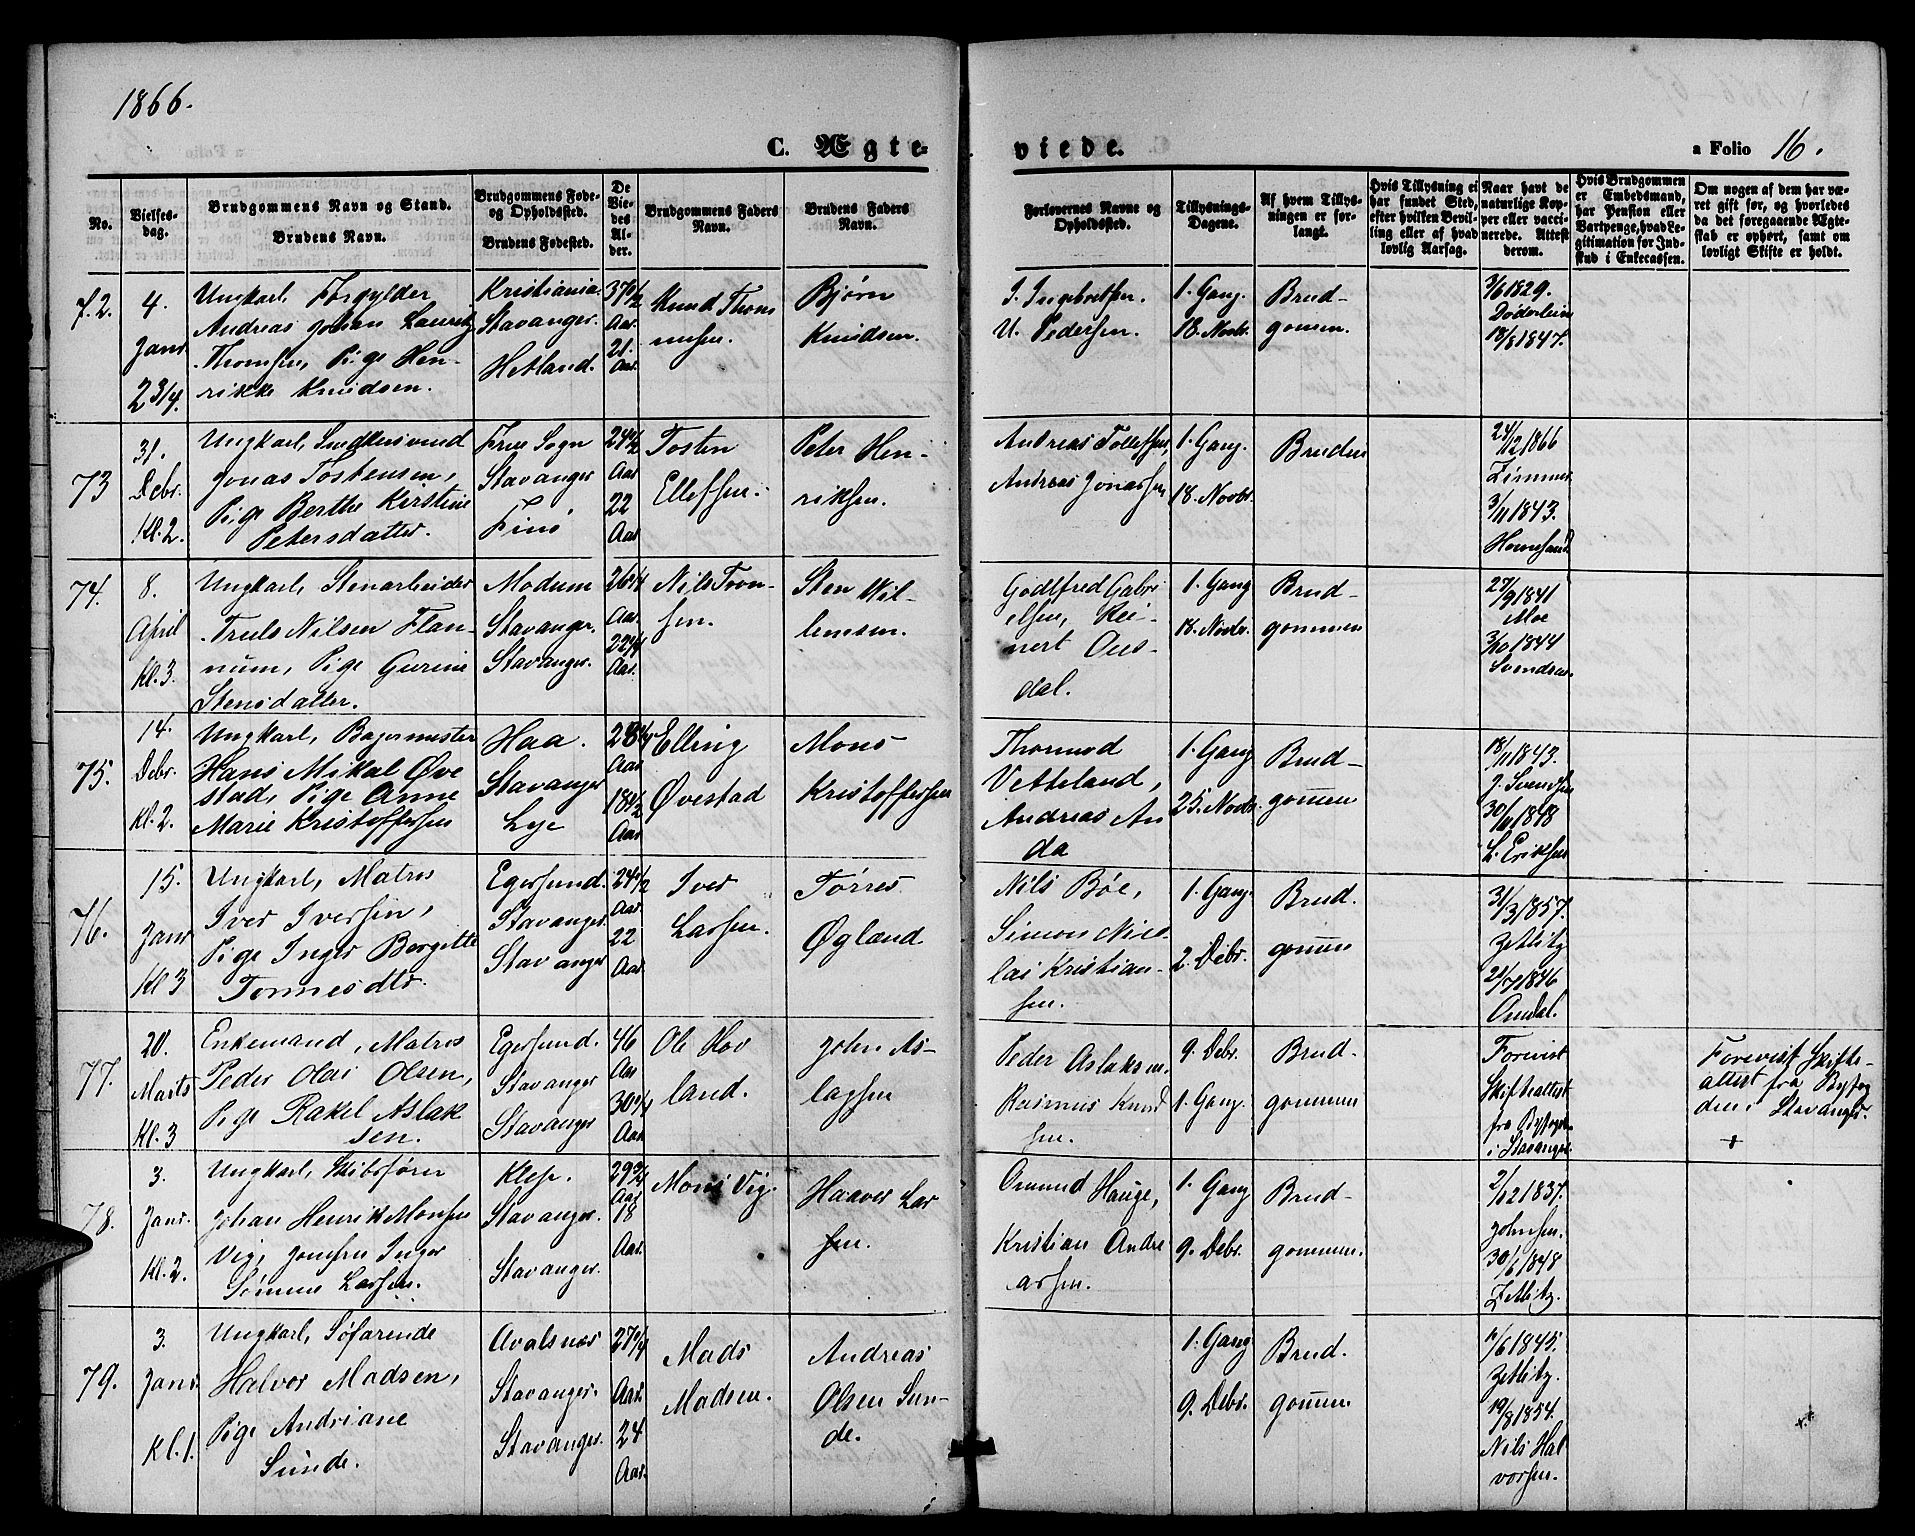 1866.
C. Ægte-
viede.
a Folio 16.
No.
Vielses-
dag.
Brudgommens Navn og Stand.
Brudens Navn.
Brudgommens Føde-
og Opholdssted.
Brudens Fødested.
De
Vie-
des
Al-
der.
Brudgommens Faders
Navn.
Brudens Faders
Navn.
Forlovernes Navne og
Opholdssted.
Tillysnings-
Dagene.
Af hvem Tillys-
ningen er for-
langt.
Hvis Tillysning ei
har fundet Sted,
efter hvilken Bevil-
ling eller af hvad
lovlig Aarsag.
Naar havt de
naturlige Kop-
per eller vacci-
nerede. Attest
derom.
Hvis Brudgommen
er Embedsmand,
har Pension eller
Vartpenge, hvad Le-
gitimation for Ind-
skud i Enkecassen.
Om nogen af dem har væ-
ret gift før, og hvorledes
da det foregaaende Ægte-
skab er ophørt, samt om
lovligt Skifte er holdt.
72.
4.
Janr
2 3/4.
Ungkarl, Forgylder
Andreas Johan Lauritz
Thomsen, Pige Hen-
rikke Knudsen.
Kristiania.
Stavanger.
Hetland.
37 1/2
Aar
21.
Aar
Knud Thom
sen.
Bjørn
Knudsen.
J. Ingebretsen.
U. Pedersen.
1. Gang.
18. Novbr.
Brud-
gomen.
3/6 1829.
18/8 1847.
73
31.
Debr.
Kl. 2.
Ungkarl,
Jonas Tostensen,
Pige Berthe Kerstine
Petersdatter.
Frue Sogn
Stavanger
Finö
24 1/2
Aar
22
Aar
Tosten
Ellefsen.
Peter Hen-
riksen.
Andreas Tollefsen,
Andreas Jonassen
1. Gang.
18. Novbr.
Bruden
24/2 1866
3/11 1843.
74.
8.
April
Kl. 3.
Ungkarl, Stenarbeider
Truls Nilsen Flan-
num, Pige Gurine
Stensdatter.
Modum
Stavanger.
Stavanger.
26 1/4
Aar
22 1/4
Aar.
Nils Tron-
sen.
Sten Wil-
lemsen.
Godtfred Gabri
elsen, Rei-
nert Aus-
dal.
1. Gang
18. Novbr.
Brud-
gommen
27/9 1841
Moe
3/10 1844
Svendsen.
75.
14.
Debr.
Kl. 2.
Ungkarl, Bagermester
Hans Mikal Øve
stad, Pige Anne
Marie Kristoffersen
Haa.
Stavanger
Lye
28 3/4
Aar
18 1/2
Aar
Elling
Øvestad
Mons
Kristoffersen
Thormod
Vetteland,
Andreas An
da
1. Gang
25. Novbr.
Brud-
gomen
18/11 1843.
J. Svendsen
30/11 1848
L. Eriksen
76.
15.
Janr
Kl 3
Ungkarl, Matros
Iver Iversen,
Pige Inger Bergitte
Tørresdtr.
Egersund.
Stavanger.
Stavanger
24 1/2
Aar.
22
Aar.
Iver
Larsen.
Tørres
Øgland
Nils Bøe,
Simon Nico
lai Kristian-
sen.
1. Gang.
2. Debr.
Brud.
gomen
31/3 1857.
Zetlitz
22/7 1846
Omdal.
77.
20.
Marts
Kl. 3
Enkemand, Matros
Peder Olai Olsen,
Pige Rakel Aslak
sen.
Egersund.
Stavanger
Stavanger
46
Aar
30 1/4
Aar
Ole Hov
land.
John As-
lagsen
Peder Aslaksen.
Rasmus Knud
sen.
9. Debr.
1. Gang.
Brud-
gommen
Forevist
Skifteattest
fra Byfogden
i Stavanger.
Forevist Skifte-
attest fra Byfog
den i Stavanger.
+
78.
3.
Janr.
Kl. 2.
Ungkarl, Skibsfører
Johan Henrik Monsen
Vig, Jomfru Inger
Larsen.
Klep.
Stavanger.
Stavanger.
29 3/4
Aar
18
Aar.
Mons Vig.
Haaver Lar
sen.
Omund Hauge,
Kristian Andre
assen.
1. Gang
9. Debr.
Brud-
gommen.
2/12 1837.
Johnsen.
30/6 1848
Zetlitz.
79.
3.
Janr.
Kl. 1.
Ungkarl, Søfarende
Halvor Madsen,
Pige Andriane
Sunde.
Avalsnæs
Stavanger.
Stavanger.
27 1/4
Aar.
24
Aar.
Mads
Madsen.
Andreas
Olsen Sun-
de.
1. Gang
9. Debr.
Brud.
gomen.
1/6 1845.
Zetlitz.
19/8 1854.
Nils Hal
vorsen.